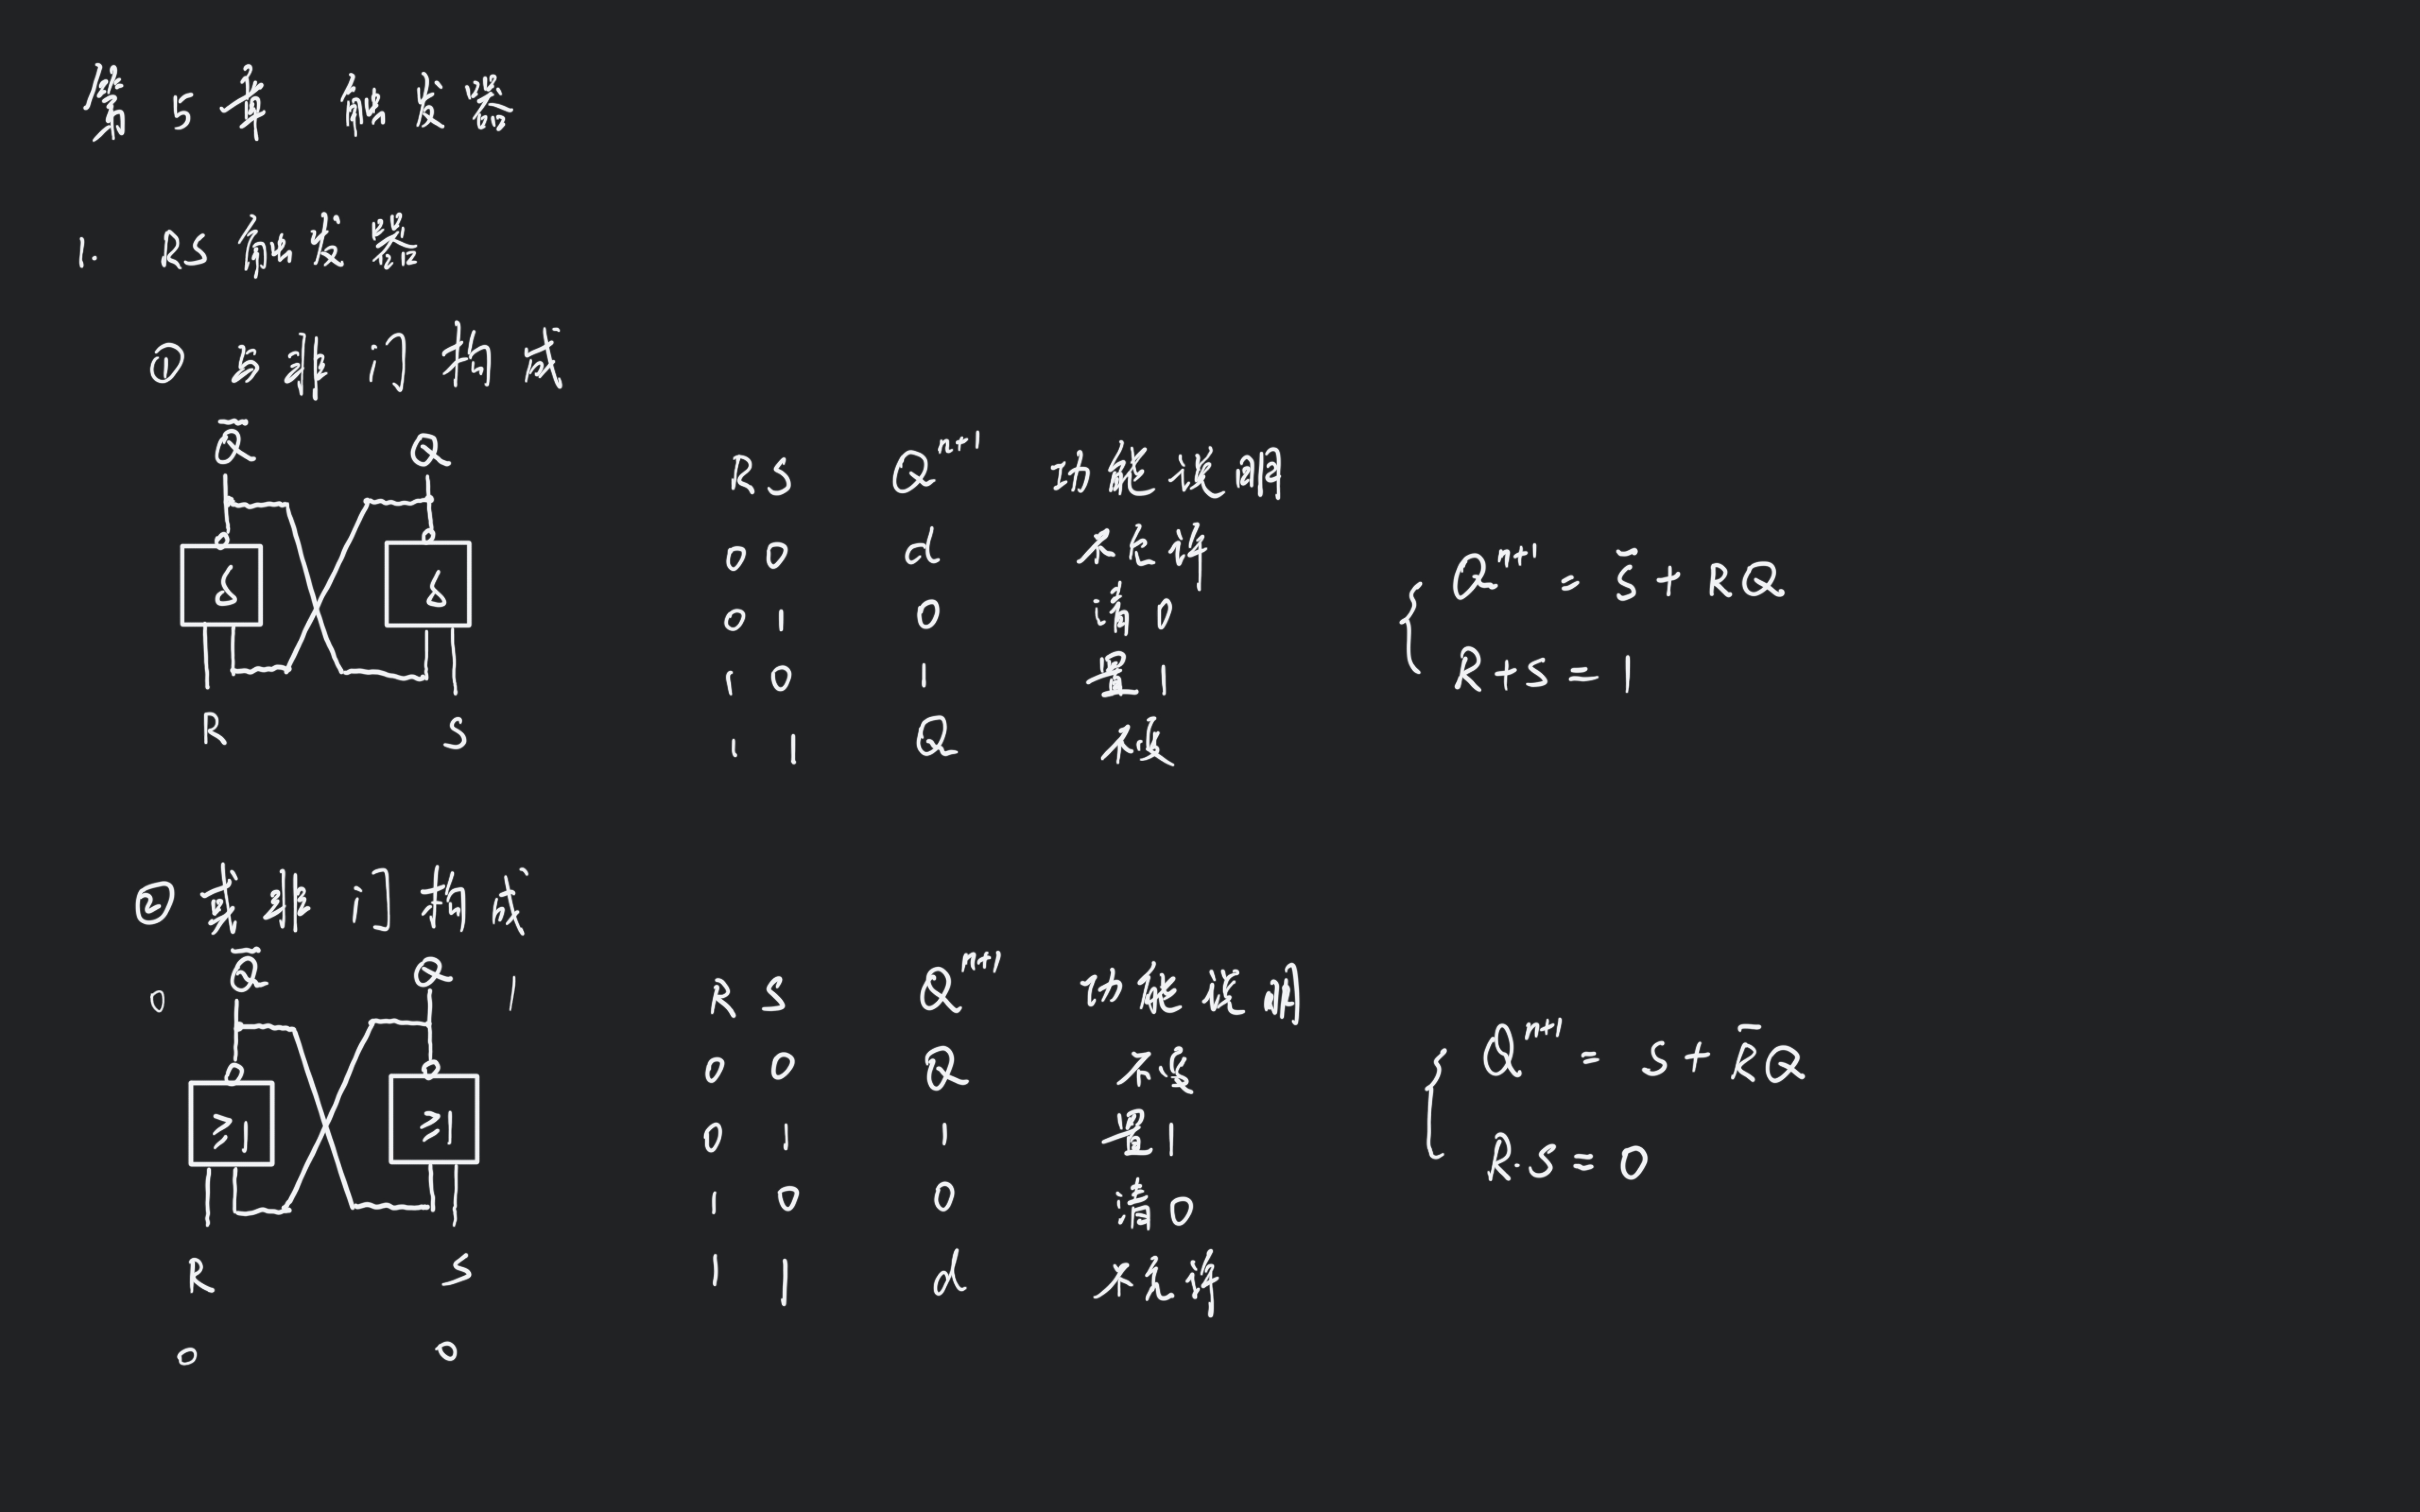 第5章 触发器
1. RS触发器
① 与非门构成
Q̄ Q
& &
R S
R S Qⁿ⁺¹ 功能说明
0 0 d 不允许
0 1 0 清0
1 0 1 置1
1 1 Q 不变
Qⁿ⁺¹ = S̄ + RQ
R + S = 1
② 或非门构成
Q̄ Q
0 1
≥1 ≥1
R S
0 0
R S Qⁿ⁺¹ 功能说明
0 0 Q 不变
0 1 1 置1
1 0 0 清0
1 1 d 不允许
Qⁿ⁺¹ = S + R̄Q
R·S = 0